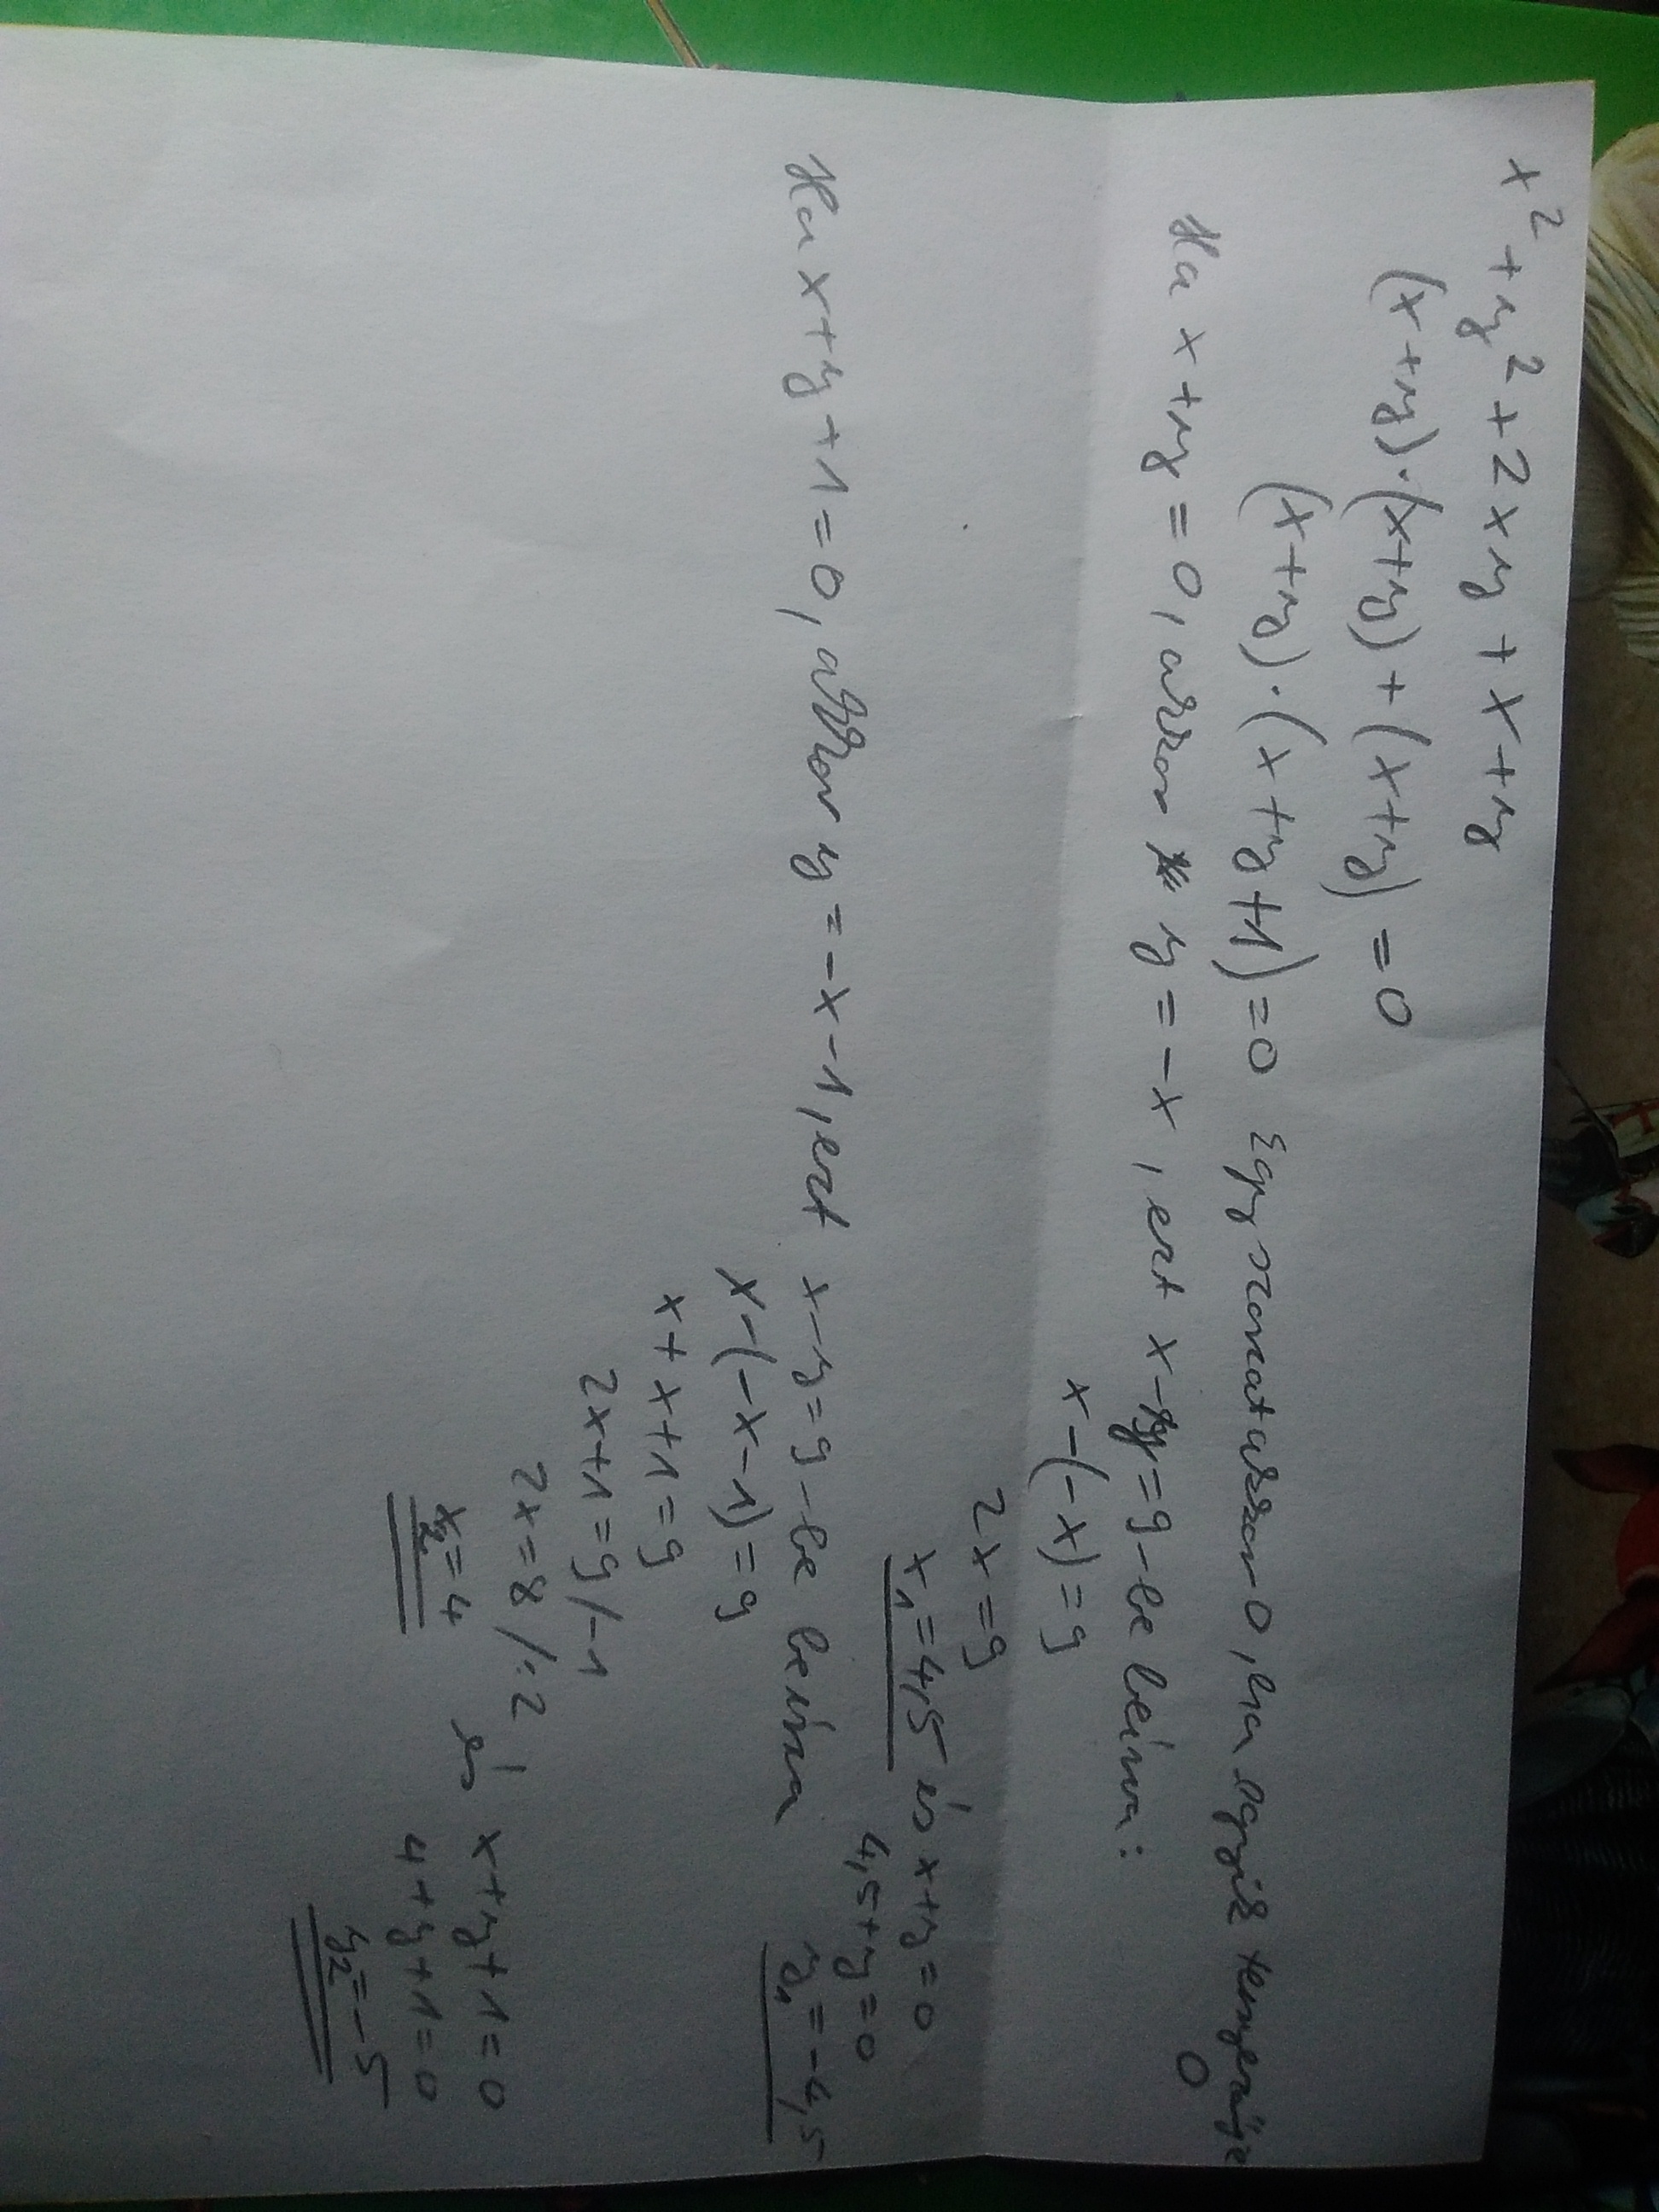 x² + y² + 2xy + x + y
(x+y)·(x+y)+(x+y)=0
(x+y)·(x+y+1)=0 Egy szorzat azzor 0, ha egyik tényezője 0
Ha x+y=0, azzor y=-x, ezt x-y=9-be beírva:
x-(-x)=9
2x=9
x₁=4,5 és x+y=0
4,5+y=0
y₁=-4,5
Ha x+y+1=0, akkor y=-x-1, ezt x-y=9-be beírva
x-(-x-1)=9
x+x+1=9
2x+1=9/-1
2x=8/:2
x₂=4 és x+y+1=0
4+y+1=0
y₂=-5